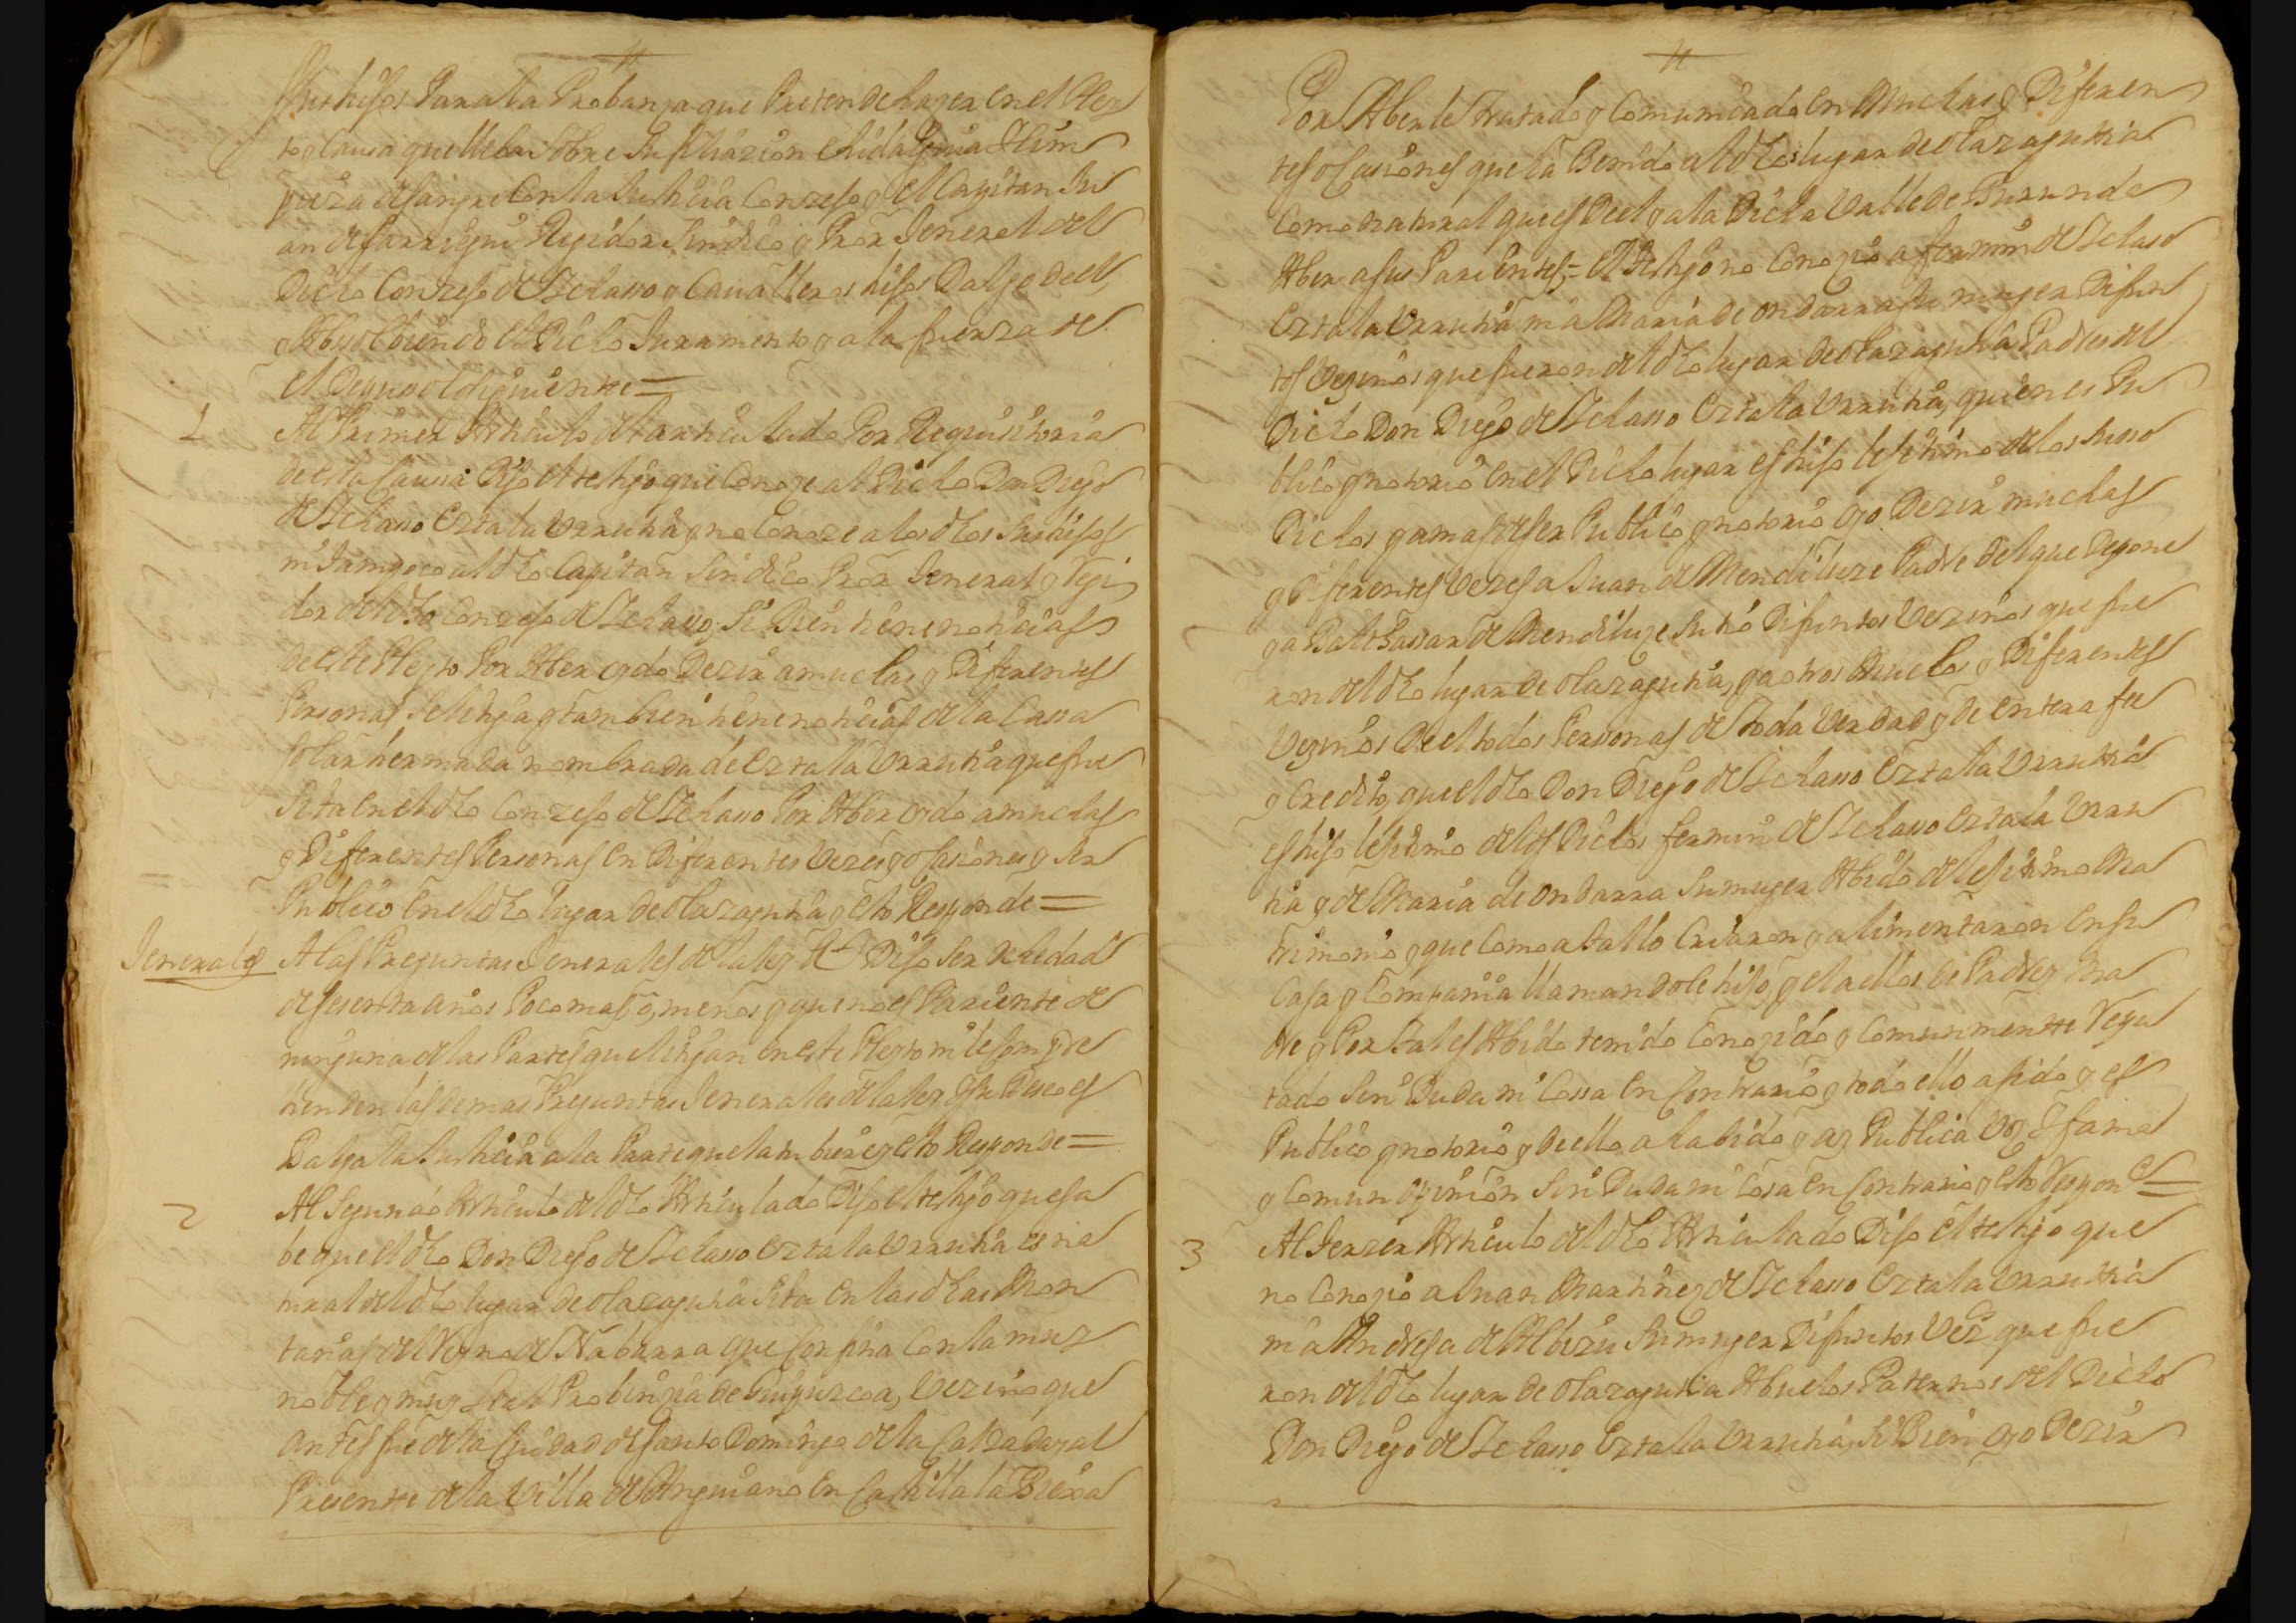 sus hijos Para la Probanza que Pretende hazer en el Pley
to y Causa que lleba Sobre Su filiazion e hidalguia Y lim
pieza de sangre Con la Justicia Conzejo y el Capitan Ju
an de Jaurregui Rejidor Sindico y Pror Jeneral del
Dicho Conzejo de Ychasso y Cavalleros hijos Dalgo dell,
y Absolbiendo el Dicho Juramento y a la fuerza de
el Depuso lo siguiente =
1 Al Primer Articulo del articulado Por Requisitoria
de esta Causa Dijo el testigo que Conoze al Dicho Don Diego
de Ychasso Eztala Urrutia, y no Conoze a los dhos Sus hijos
ni Tampoco al dho Capitan Sindico Pror Jeneral y Reji
dor del dho Conzejo de Ychasso; Si Bien tiene noticias
de este Pleyto Por Aber oydo Dezir a muchas y Diferentes
Personas Se litiga y tambien tiene noticias de la Cassa
solar hermada nombrada de Eztala Urrutia que fue
Sita en el dho Conzejo de Ychasso Por Aber oydo a muchas
y Diferentes Personas en Diferentes Vezes y ocasiones y Ser
Publico en el dho lugar de olazagutia y esto Responde =
Jenerales A las Preguntas Jenerales de la ley Dijo Ser de hedad
de sesenta años Poco mas o, menos y que no es Pariente de
ninguna de las Partes que litigan en este Pleyto ni le compre
henden las demas Preguntas Jenerales de la ley Y su Deseo es
Balga la Justicia a la Parte que la tubiere y esto Responde =
2 Al Segundo Articulo del dho Articulado Dijo el testigo que sa
be que el dho Don Diego de Ychasso Eztala Urrutia es na
tural del dho lugar de olazagutia Sita en las dhas Mon
tañas del Reyno de Nabarra que Confina Con la muy
noble y muy Leal Probinzia de Guipuzcoa, Vezino que
antes fue de la Ciudad de Santo Domingo de la Calzada y al
Presente de la Villa de Anguiano en Castilla la Bieja
Por Aberle tratado y Comunicado en Muchas y Diferen
tes ocasiones que ha Benido al dho lugar de olazagutia
Como natural que es Deel y a la Dicha Valle de Burunda
Aber a sus Parientes = el testigo no Conozio a fermin de Ychaso
Eztala Urrutia ni a Maria de ondarra su muger Difun
tos Vezinos que fueron del dho lugar de olazagutia Padres del
Dicho Don Diego de Ychasso Eztala Urrutia, quien es Pu
blico y notorio en el Dicho lugar es hijo lejitimo de los Suso
Dichos y a mas de ser Publico y notorio oyo Dezir muchas
y Diferentes Vezes a Juan de Mendiluze Padre del que Depone
y a Baltassar de Mendiluze Su tio Difuntos Vezinos que fue
ron del dho lugar de olazagutia, y a otros Muchos y Diferentes
Vezinos Deel todos Personas de Toda Verdad y de entera fee
y Credito, que el dho Don Diego de Ychasso Eztala Urrutia
es hijo lejitimo de los Dichos fermin de Ychasso Eztala Urru
tia y de Maria de ondarra Su muger Abido de lejitimo Ma
trimonio y que Como a tal lo Criaron y alimentaron en su
Casa y Compania llamandole hijo, y el a ellos de Padre y Ma
dre y Por tal es Abido tenido Conozido y Comunmente Repu
tado Sin Duda ni Cossa en Contrario y todo ello a sido y es
Publico y notorio y de ello a habido y ay Publica Voz Y fama
y Comun opinion Sin Duda ni Cosa en Contrario y esto Respon de =
3 Al Terzer Articulo del dho Articulado Dijo el testigo que
no Conozio a Juan Martinez de Ychasso Eztala Urrutia
ni a Andresa de Albizu Su muger Difuntos Vez que fue
ron del dho lugar de olazagutia Abuelos Paternos del Dicho
Don Diego de Ychasso Eztala Urrutia, Si Bien oyo Dezir